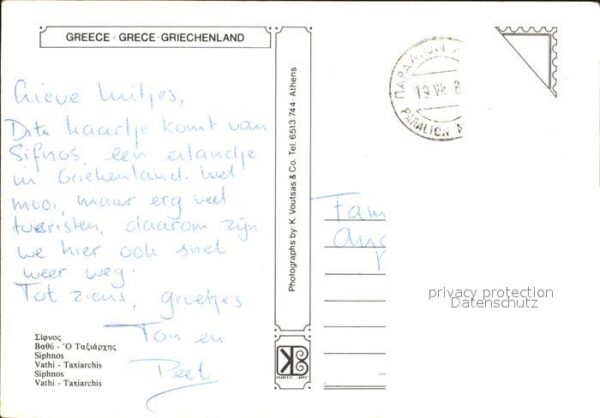 GREECE · GRECE · GRIECHENLAND
Lieve luitjes,
Dit kaartje komt van
Sifnos, een eilandje
in Griekenland. Wel
mooi, maar erg veel
toeristen, daarom zijn
we hier ook snel
weer weg.
Tot ziens, groetjes
Ton en
Σίφνος
Βαθύ - Ὁ Ταξιάρχης
Siphnos
Vathi - Taxiarchis
Siphnos
Vathi - Taxiarchis
Photographs by: K. Voutsas & Co. Tel. 6513 744 - Athens
ΠΑΡΑΛΙΟΝ Α
19 VII 8
PARALION A
Fam
privacy protection
Datenschutz